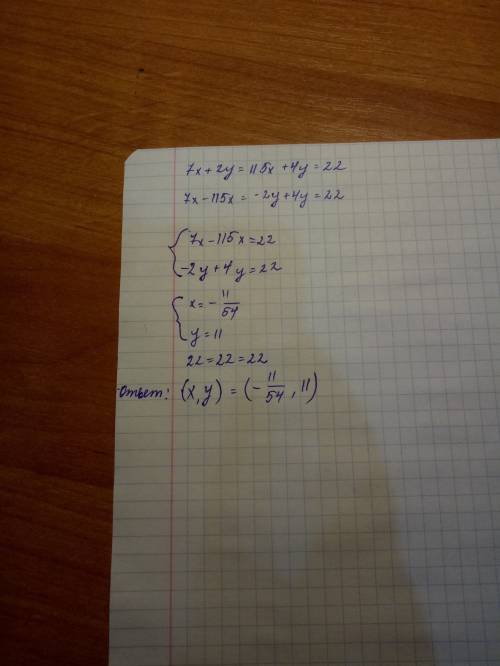 7x+2y=115x+4y=22
7x-115x=-2y+4y=22
{7x-115x=22
-2y+4y=22
{x=-11/54
y=11
22=22=22
Ответ: (x,y)=(-11/54, 11)